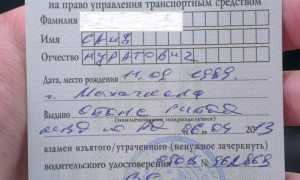 на право управления транспортным средством
Фамилия
Имя Саид
Отчество Нуратович
Дата, место рождения 11.09 1989
г. Махачкала
Выдано
(наименование подразделения)
МВД по РД 26.04 2013
взамен изъятого/утраченного (ненужное зачеркнуть)
водительского удостоверения